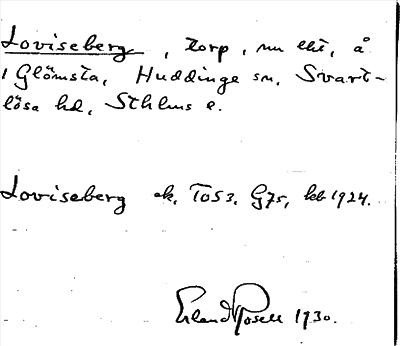 Loviseberg, torp, nu cht, å
1 Glömsta, Huddinge sn, Svart-
lösa hd, Sthlms l.
Loviseberg ek. To53. G75, kb 1924.
Erland Rosell 1930.